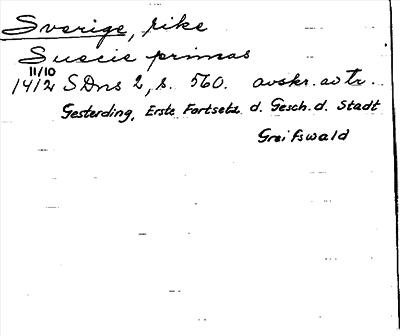 Sverige, rike
Suecie primas
11/10
1412 SDns 2, s. 560. avskr. av tr.
Gesterding, Erste Fortsetz. d. Gesch. d. Stadt
Greifswald